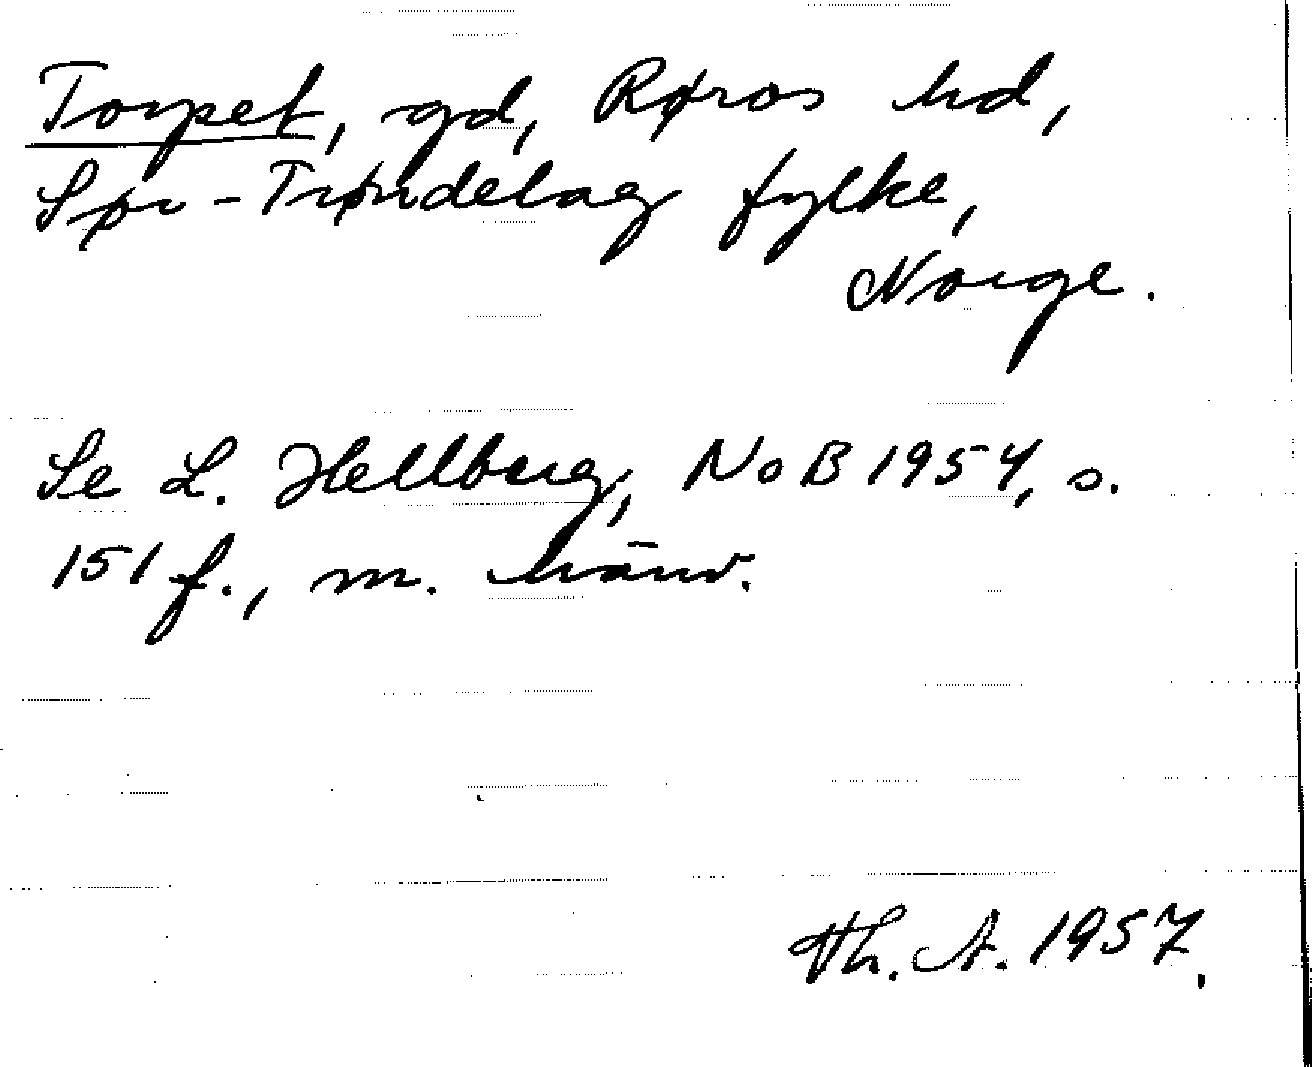 Torpet, gd, Røros hd,
Sør-Trøndelag fylke,
Norge.
Se L. Hellberg, NoB 1954, s.
151 f., m. hänv.
Th. A. 1957.